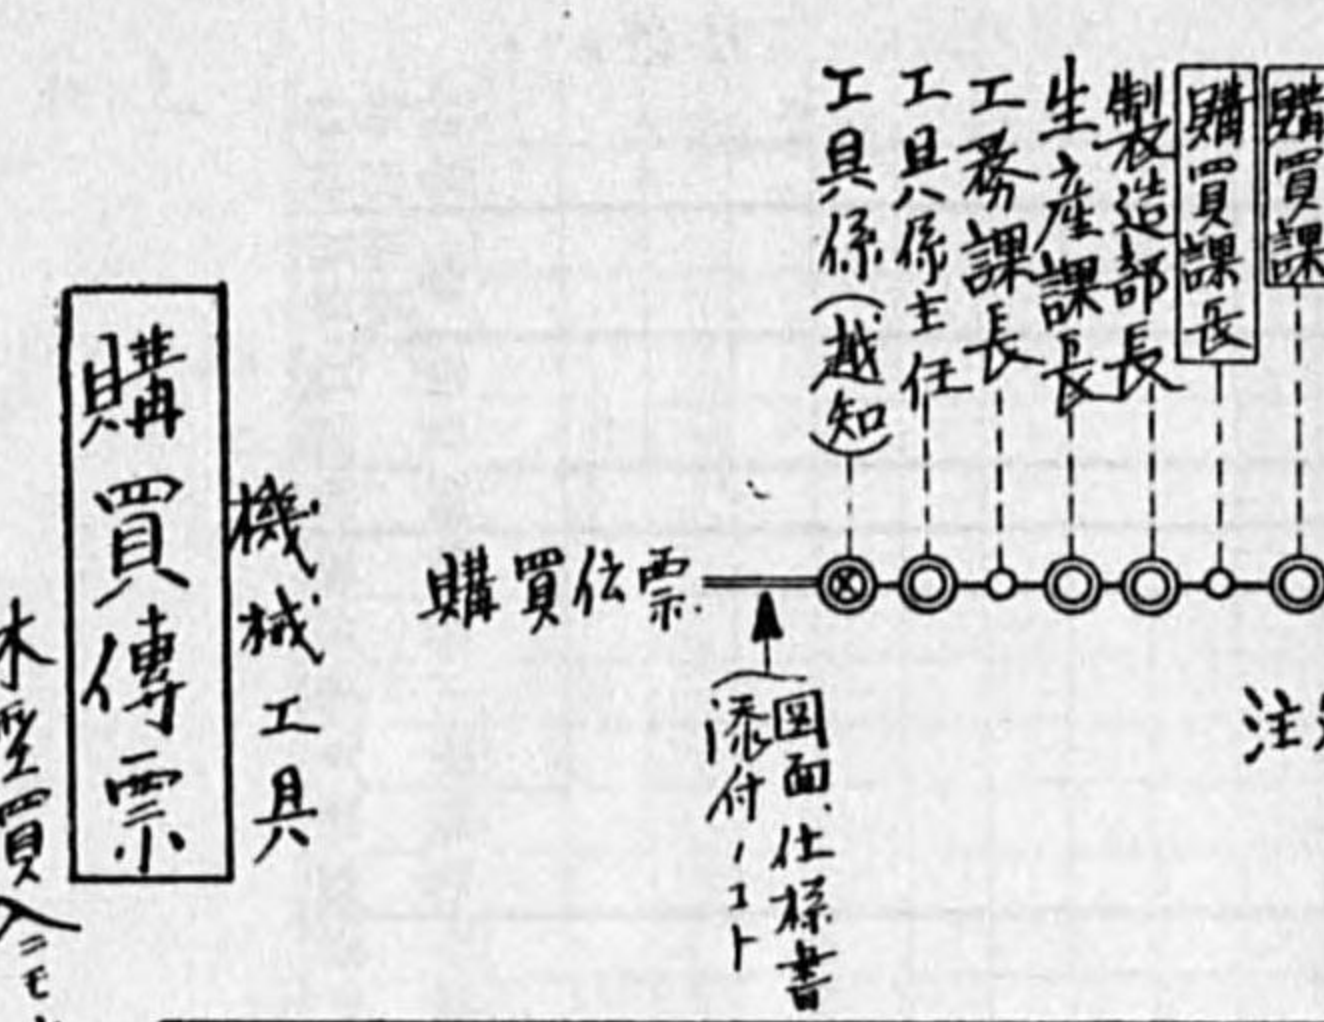 購買課
購買課長
製造部長
生産課長
工務課長
工具係主任
工具係(越知)
購買伝票
図面、仕様書
添付ノコト
機械工具
購買傳票
木型買入ニモ